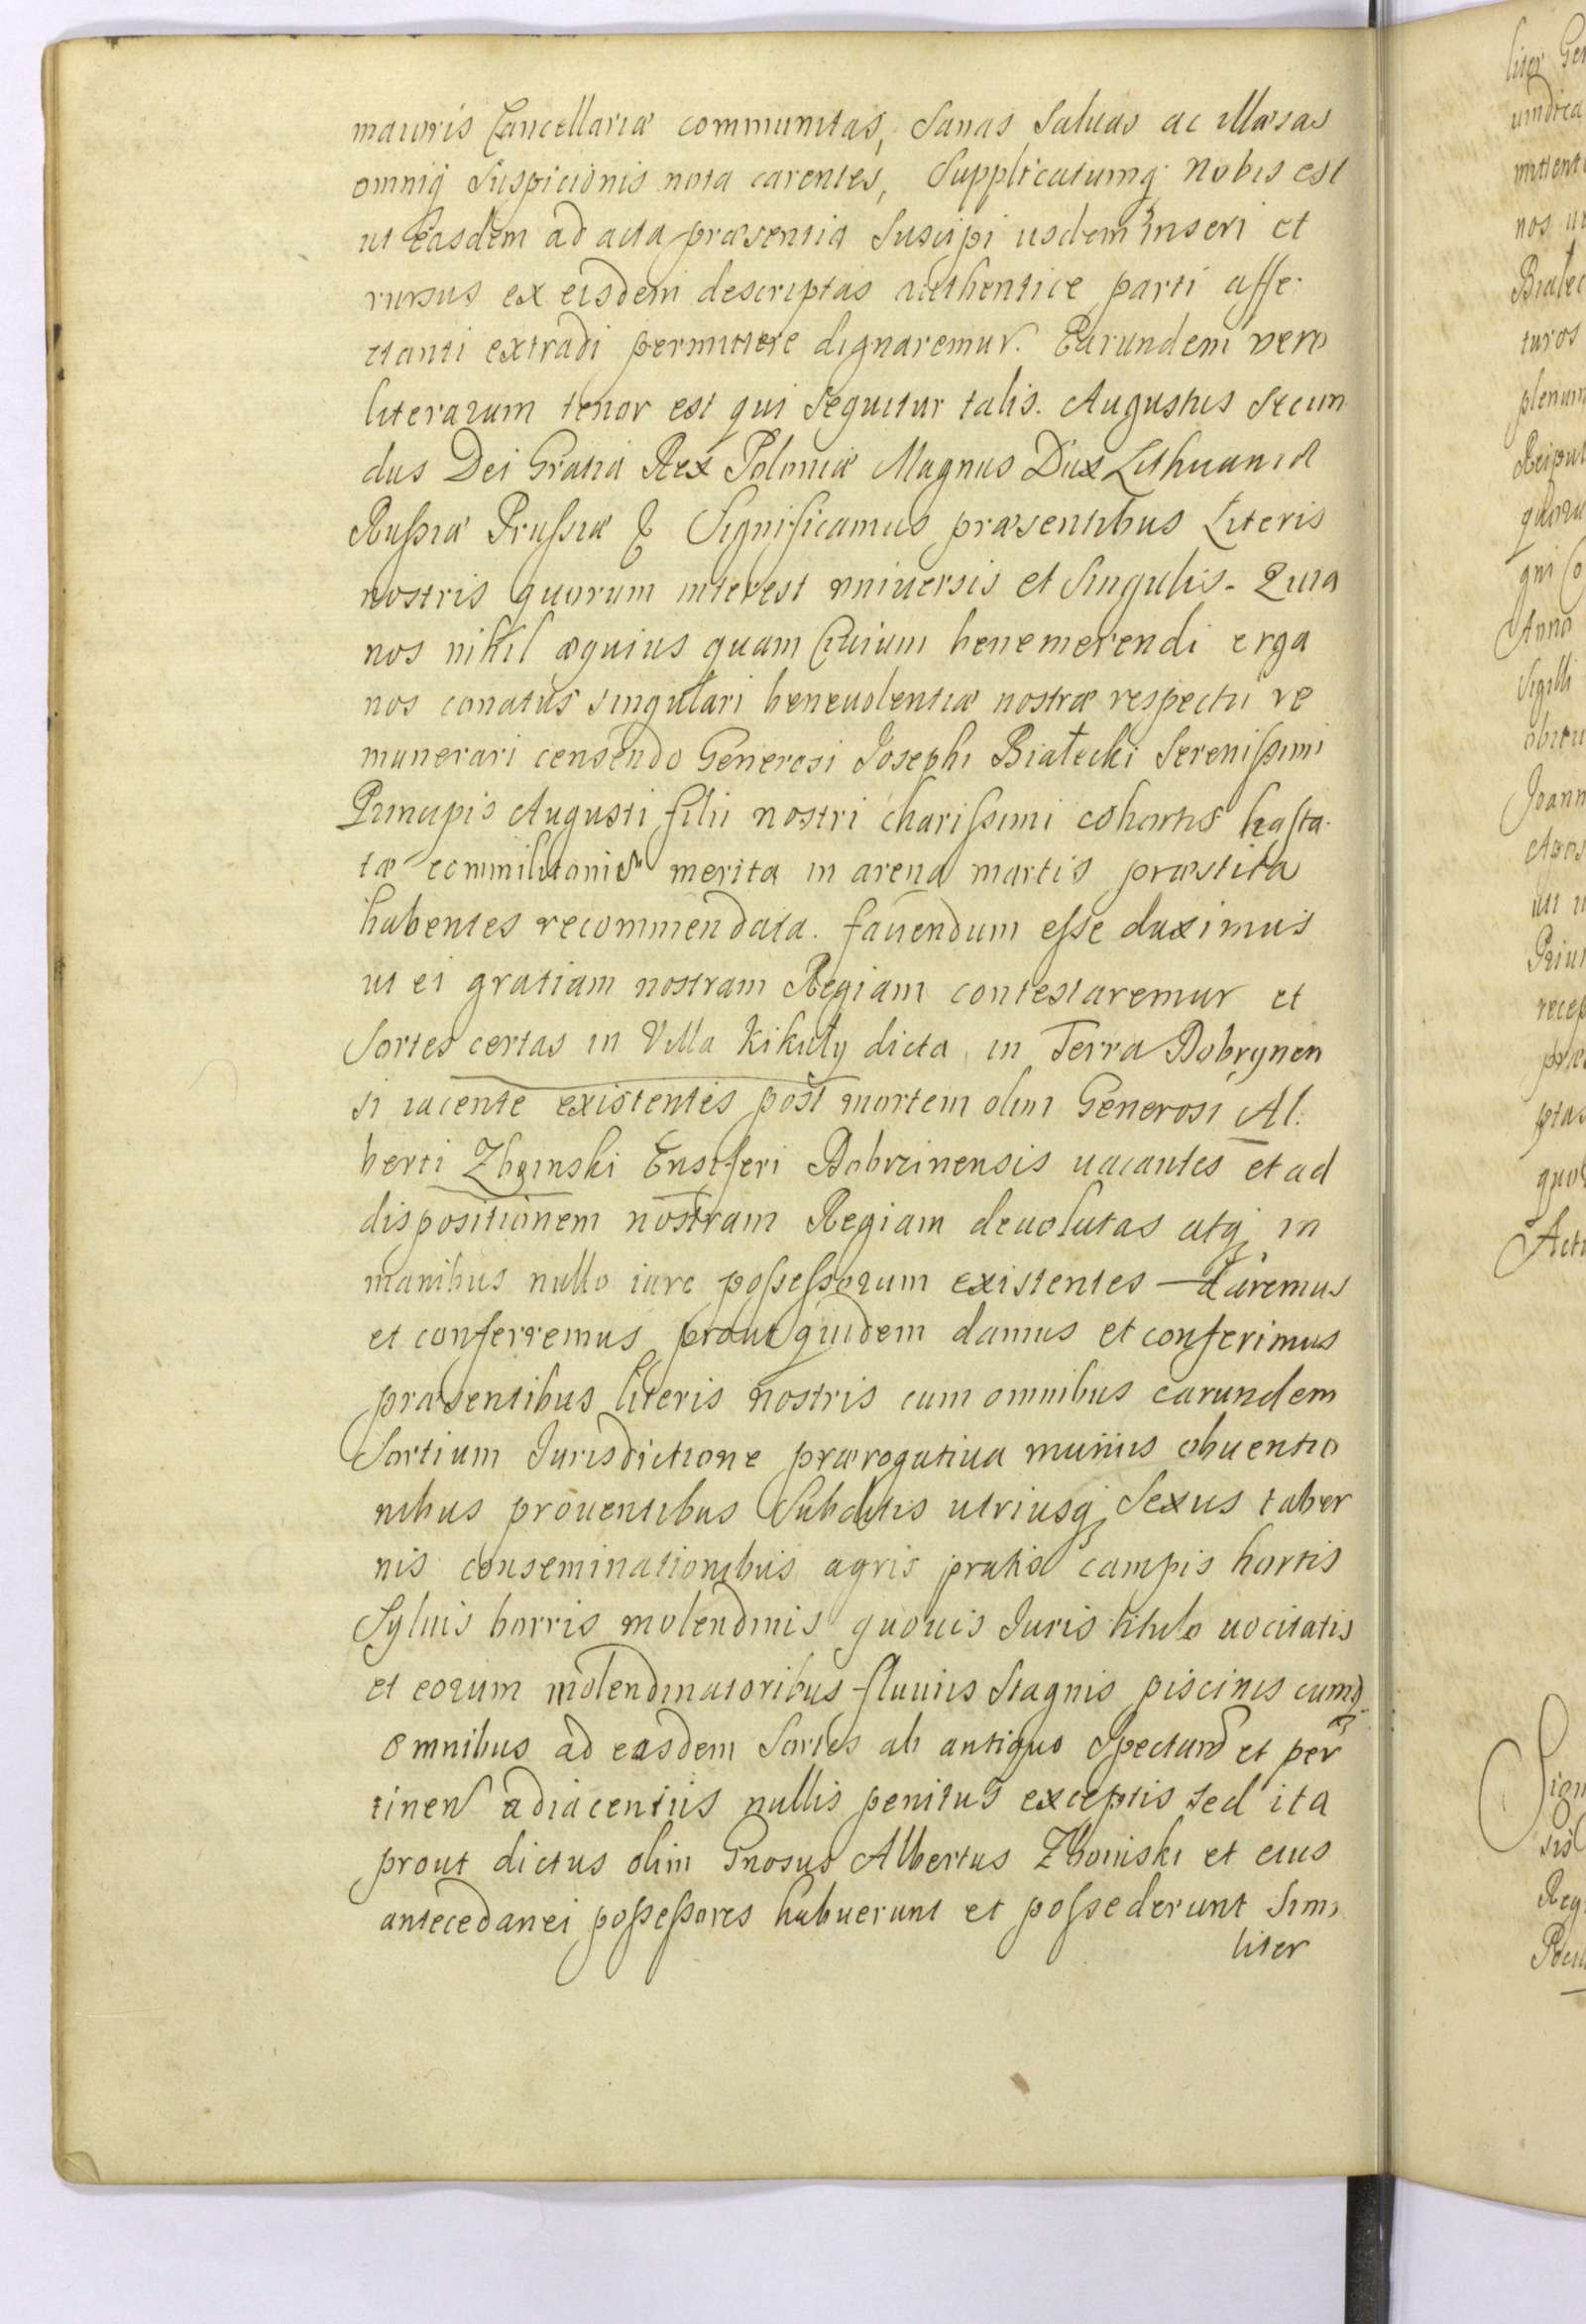 maioris Cancellariæ communitas, Sanas Saluas ac illæsas
omniq̃ Suspicionis nota carentes, Supplicatumq̃ nobis est
ut Easdem ad acta præsentia Suscipi iisdem inseri et
rursus ex eisdem descriptas authentice parti affe-
ctanti extradi permittere dignaremur. Earundem vero
literarum tenor est qui Sequitur talis. Augustus Secun
dus Dei Gratia Rex Poloniæ Magnus Dux Lithuaniæ
Rußiæ Prußiæ & Significamus præsentibus Literis
nostris quorum interest universis et Singulis. Quia
nos nihil æquius quam Ciuium benemerendi erga
nos conatus singulari beneuolentiæ nostræ respectu re
munerari censendo Generosi Josephi Białecki Serenißimi
Principis Augusti filii nostri charißimi cohortis hasta-
tæ commilitonis merita in arena martis præstita
habentes recommendata. fauendum esse duximus
ut ei gratiam nostram Regiam contestaremur et
Sortes certas in Villa Kikuły dicta in Terra Dobrynen
si iacente existentes post mortem olim Generosi Al:
berti Zboinski Ensiferi Dobrzinensis uacantes et ad
dispositionem nostram Regiam deuolutas atq̃ in
manibus nullo iure poßeßorum existentes – daremus
et conferremus prout quidem damus et conferimus
præsentibus literis nostris cum omnibus earundem
Sortium Jurisdictione prærogatiua muniis obuentio
nibus prouentibus Subditis utriusq̃ Sexus taber
nis conseminationibus agris pratis campis hortis
Syluis borris molendinis quouis Juris titulo uocitatis
et eorum molendinatoribus fluuiis Stagnis piscinis cumq̃
omnibus ad easdem Sortes ab antiquo Spectan et per
tinen adiacentiis nullis penitus exceptis sed ita
prout dictus olim Gnosus Albertus Zboinski et eius
antecedanei poßeßores habuerunt et poßederunt Simi
liter